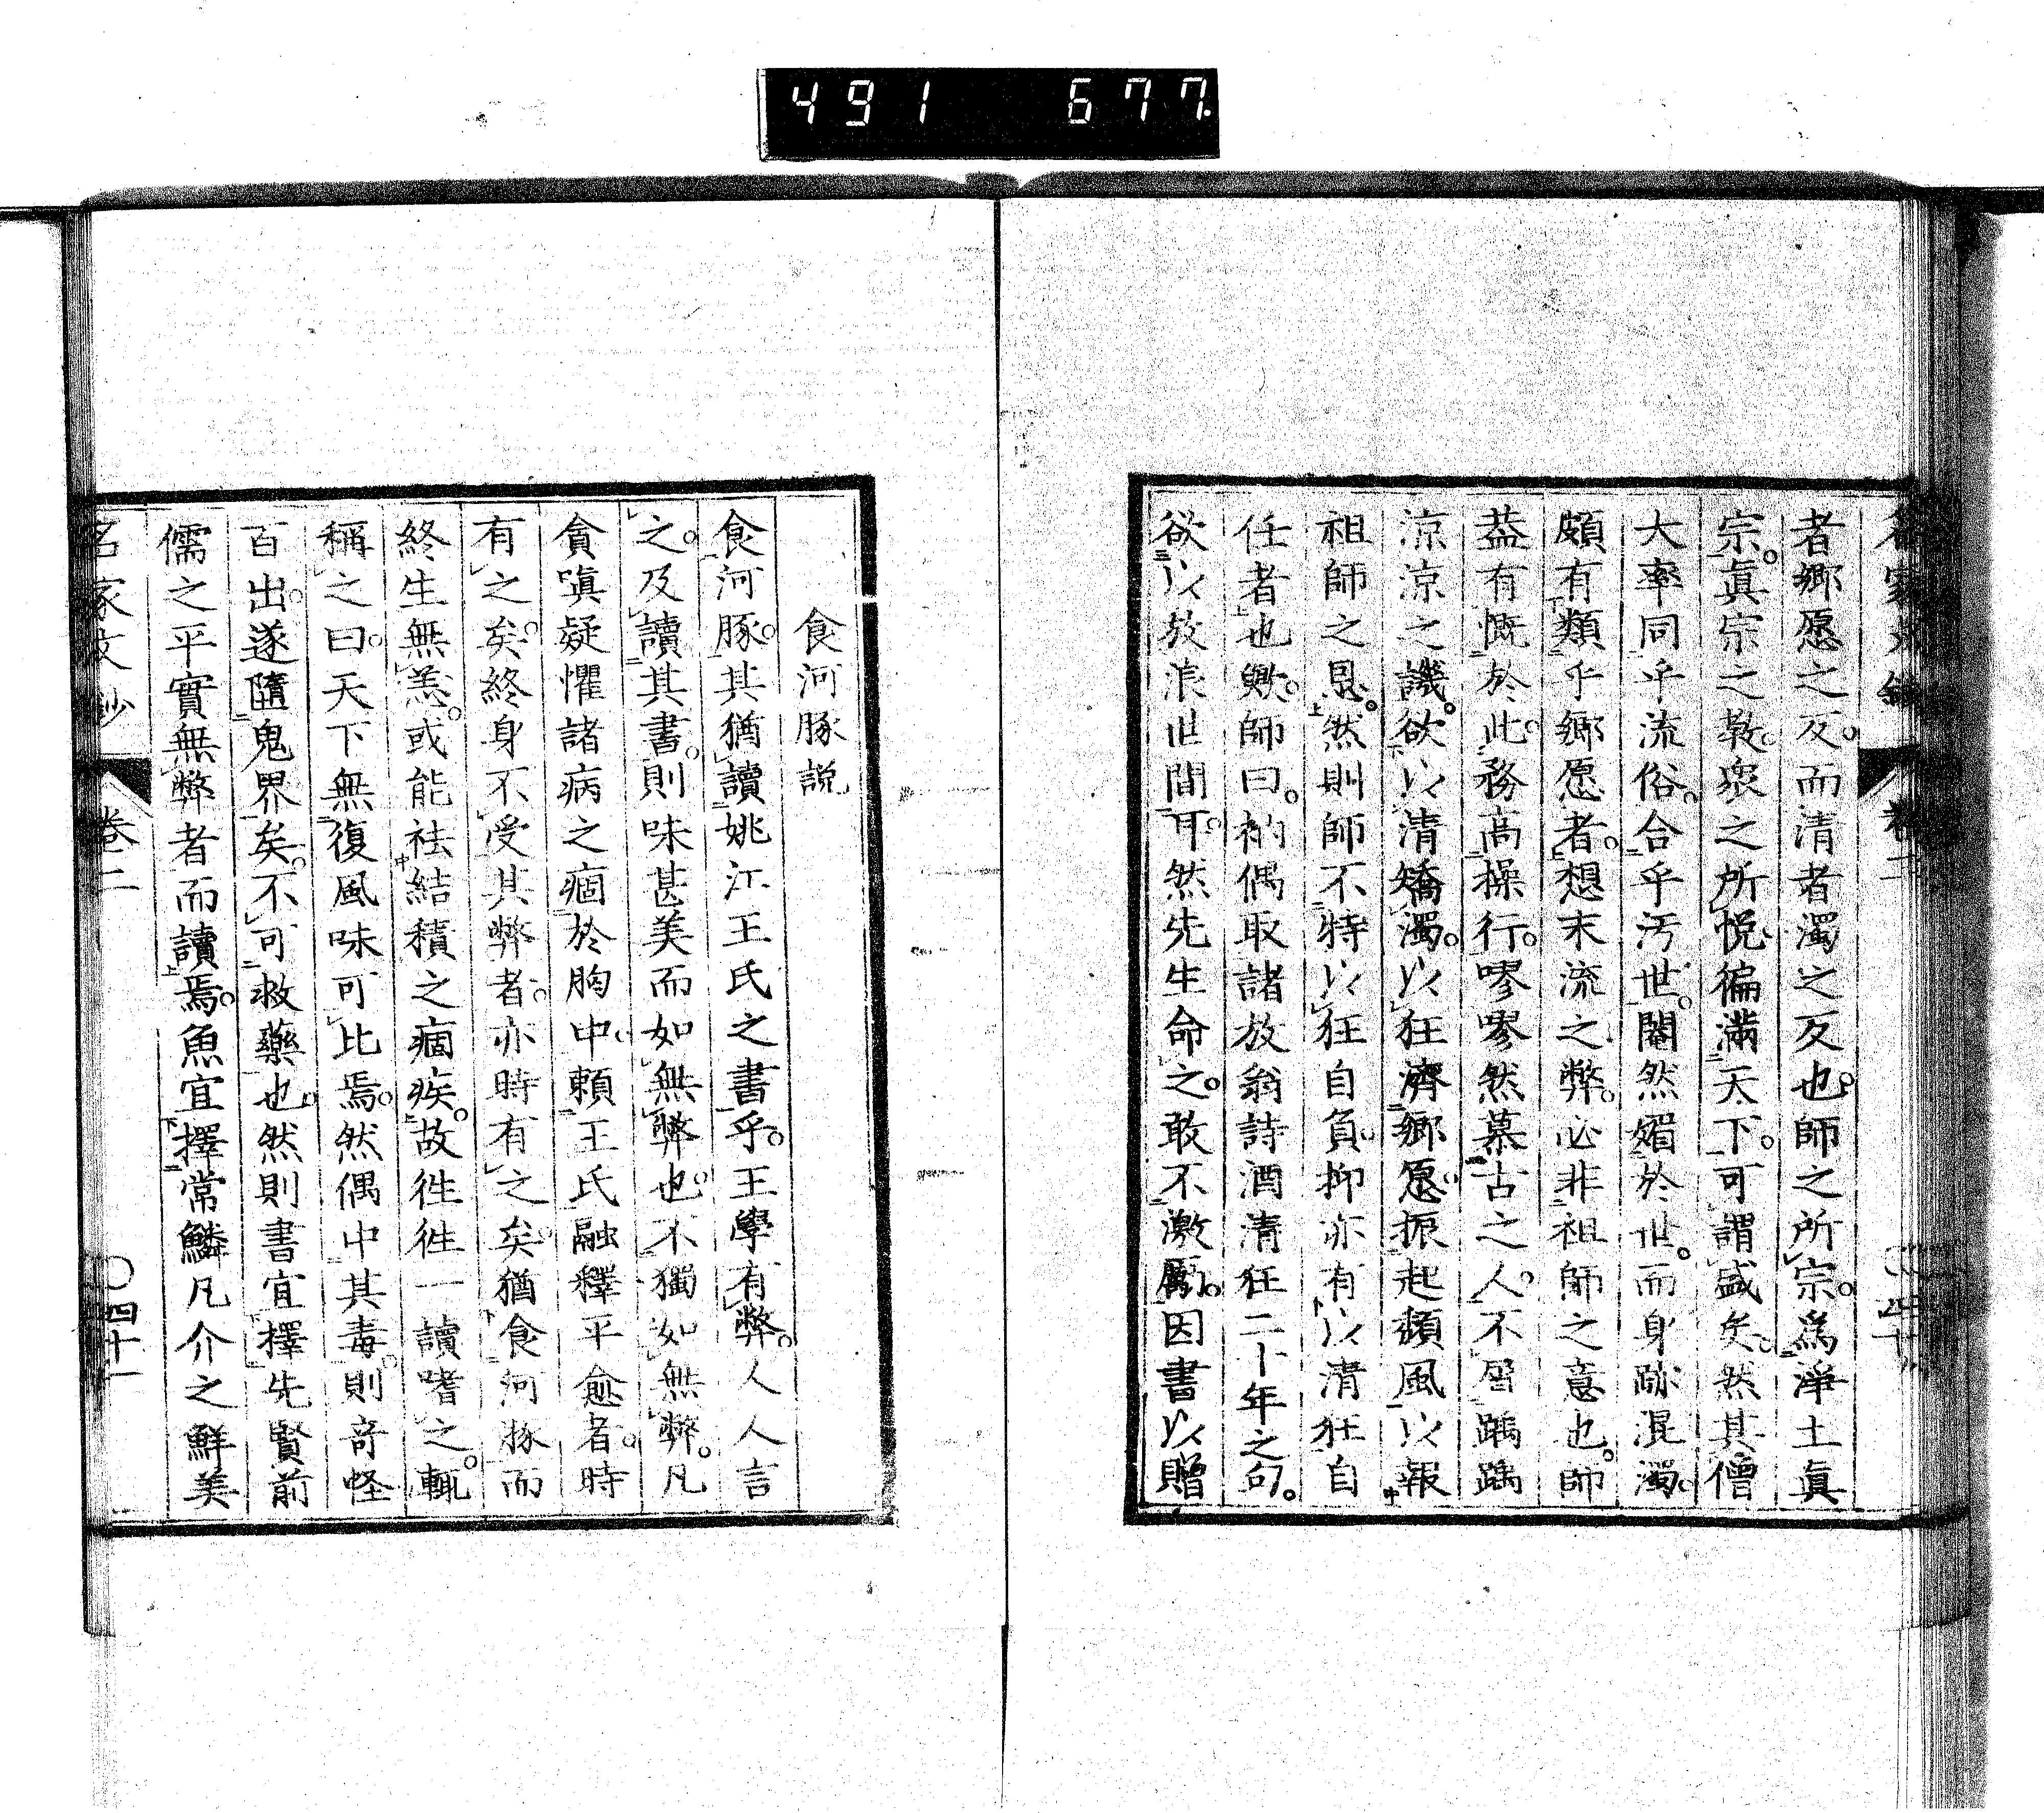 491 677.
者鄉愿之反。而清者濁之反也。師之所宗。爲淨土眞
宗。眞宗之教。衆之所悅。徧滿天下。可謂盛矣。然其僧
大率同乎流俗。合乎汚世。閹然媚於世。而身跡混濁。
頗有類乎鄉愿者。想末流之弊。必非祖師之意也。師
葢有慨於此。務高操行。嘐嘐然慕古之人。不屑踽踽
涼涼之譏。欲以清矯濁。以狂濟鄉愿。振起頽風。以報
祖師之恩。然則師不特以狂自負。抑亦有以清狂自
任者也歟。師曰。衲偶取諸放翁詩酒清狂二十年之句。
欲以放浪世間耳。然先生命之。敢不激厲。因書以贈
食河豚説
食河豚。其猶讀姚江王氏之書乎。王學有弊。人人言
之。及讀其書。則味甚美而如無弊也。不獨如無弊。凡
貪嗔疑懼諸病之痼於胸中。賴王氏融釋平愈者。時
有之矣。終身不受其弊者。亦時有之矣。猶食河豚而
終生無恙。或能祛結積之痼疾。故徃徃一讀嗜之。輒
稱之曰。天下無復風味可比焉。然偶中其毒。則奇怪
百出。遂墮鬼界矣。不可救藥也。然則書宜擇先賢前
儒之平實無弊者而讀焉。魚宜擇常鱗凡介之鮮美
名家文鈔 卷二 〇四十一